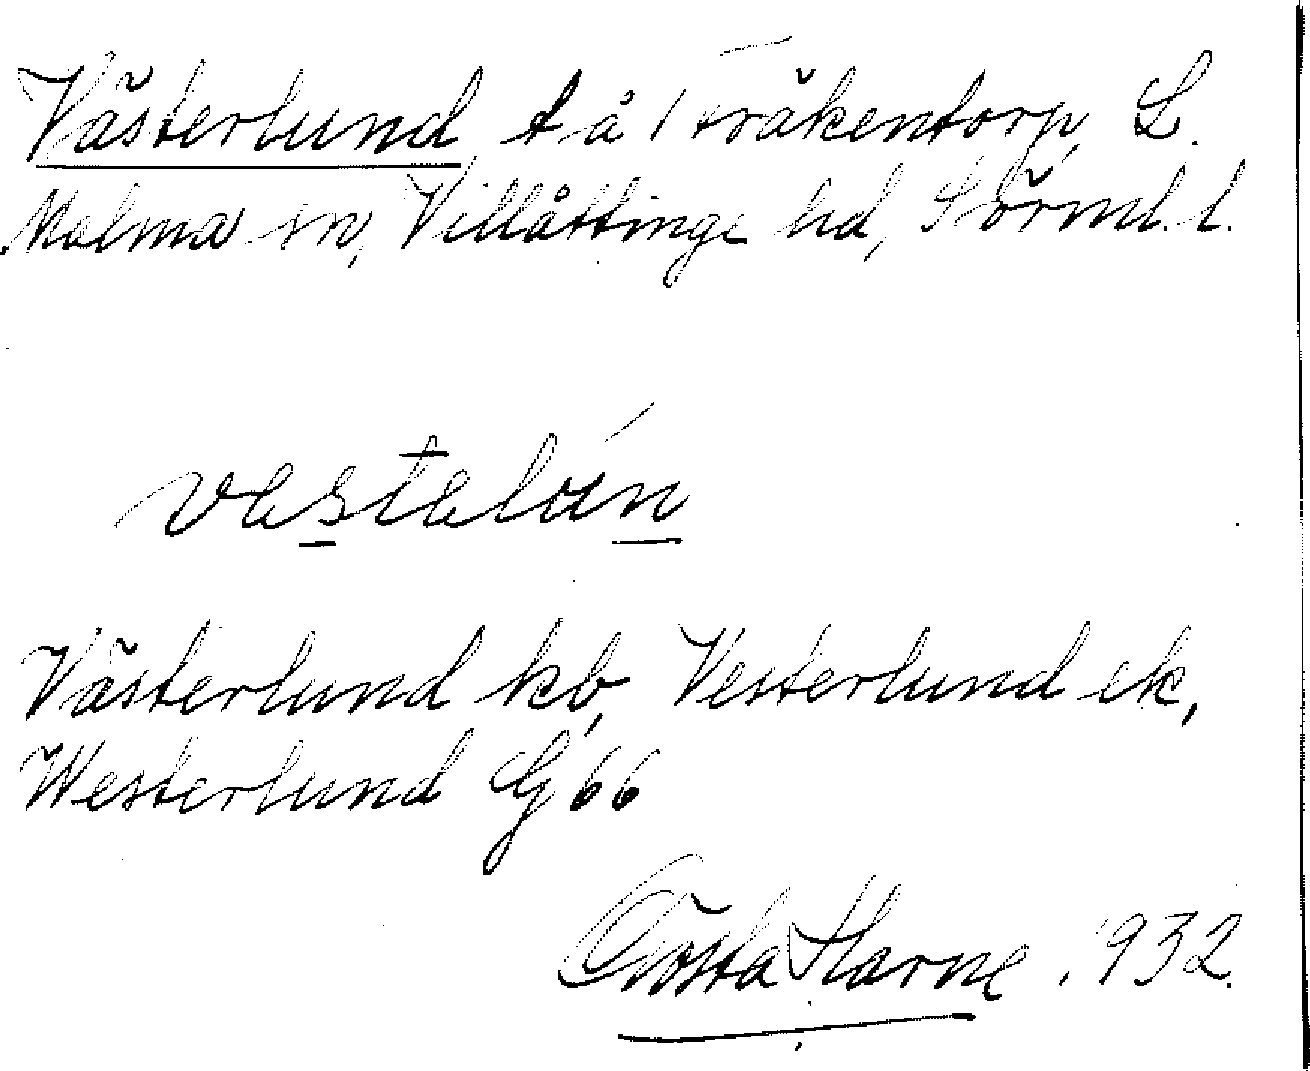 Västerlund, t å Fräkentorp, L.
Malma sn, Villåttinge hd, Sörml. l.
vestelún
Västerlund kb, Vesterlund ek,
Westerlund G 66
Gösta Harne. 1932.